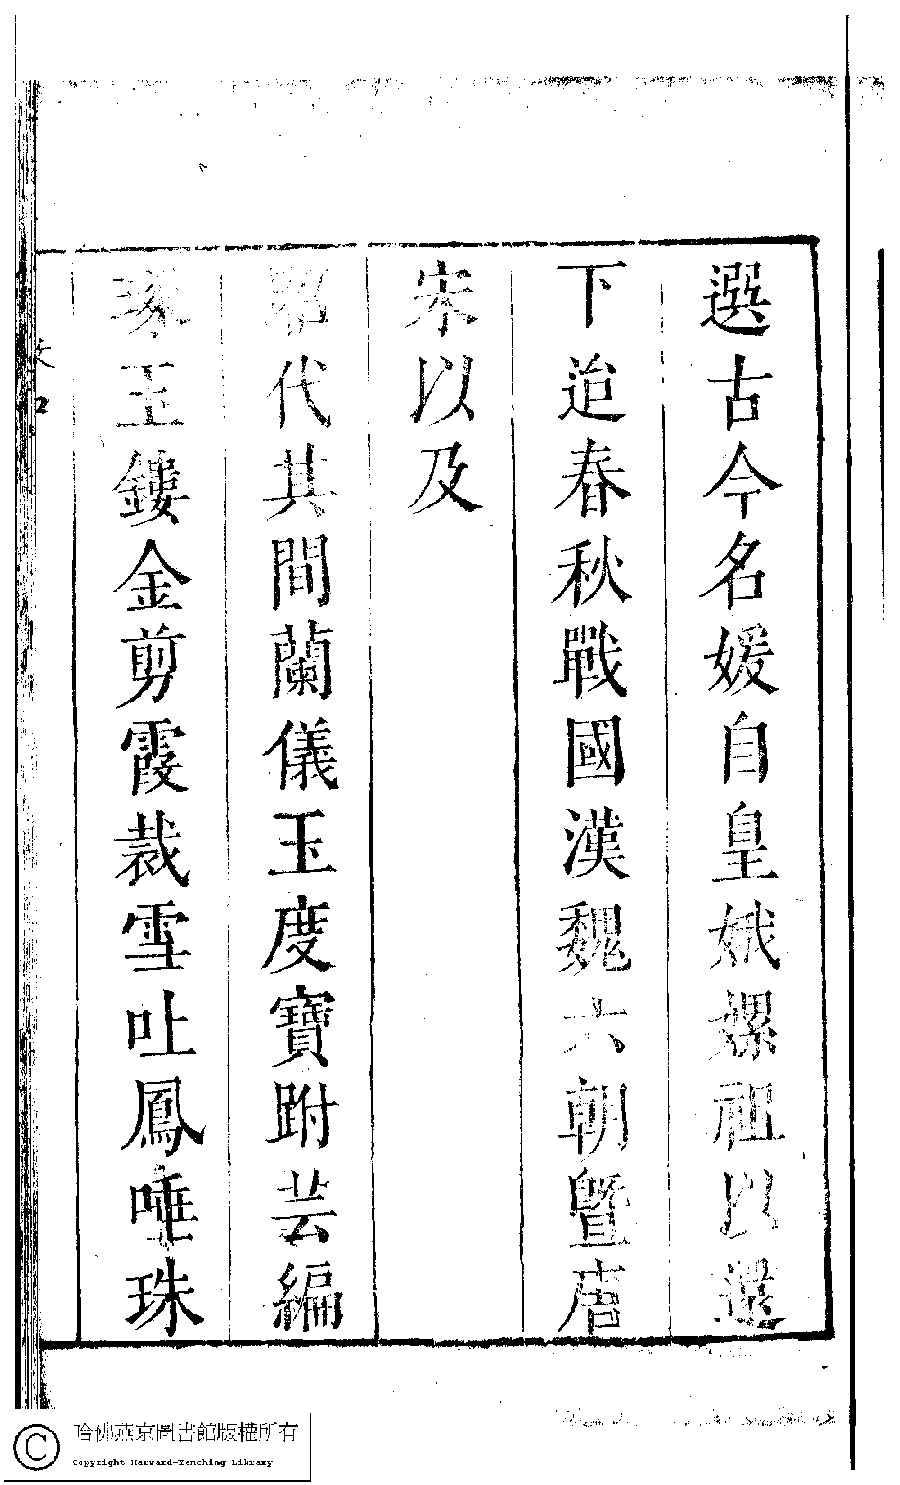 選古今名媛自皇娥嫘祖以還
下迨春秋戰國漢魏六朝暨唐
宋以及
代其間蘭儀玉度寶跗芸編
琢玉鏤金剪霞裁雪吐鳳唾珠
哈佛燕京圖書館版權所有
Copyright Harvard-Yenching Library